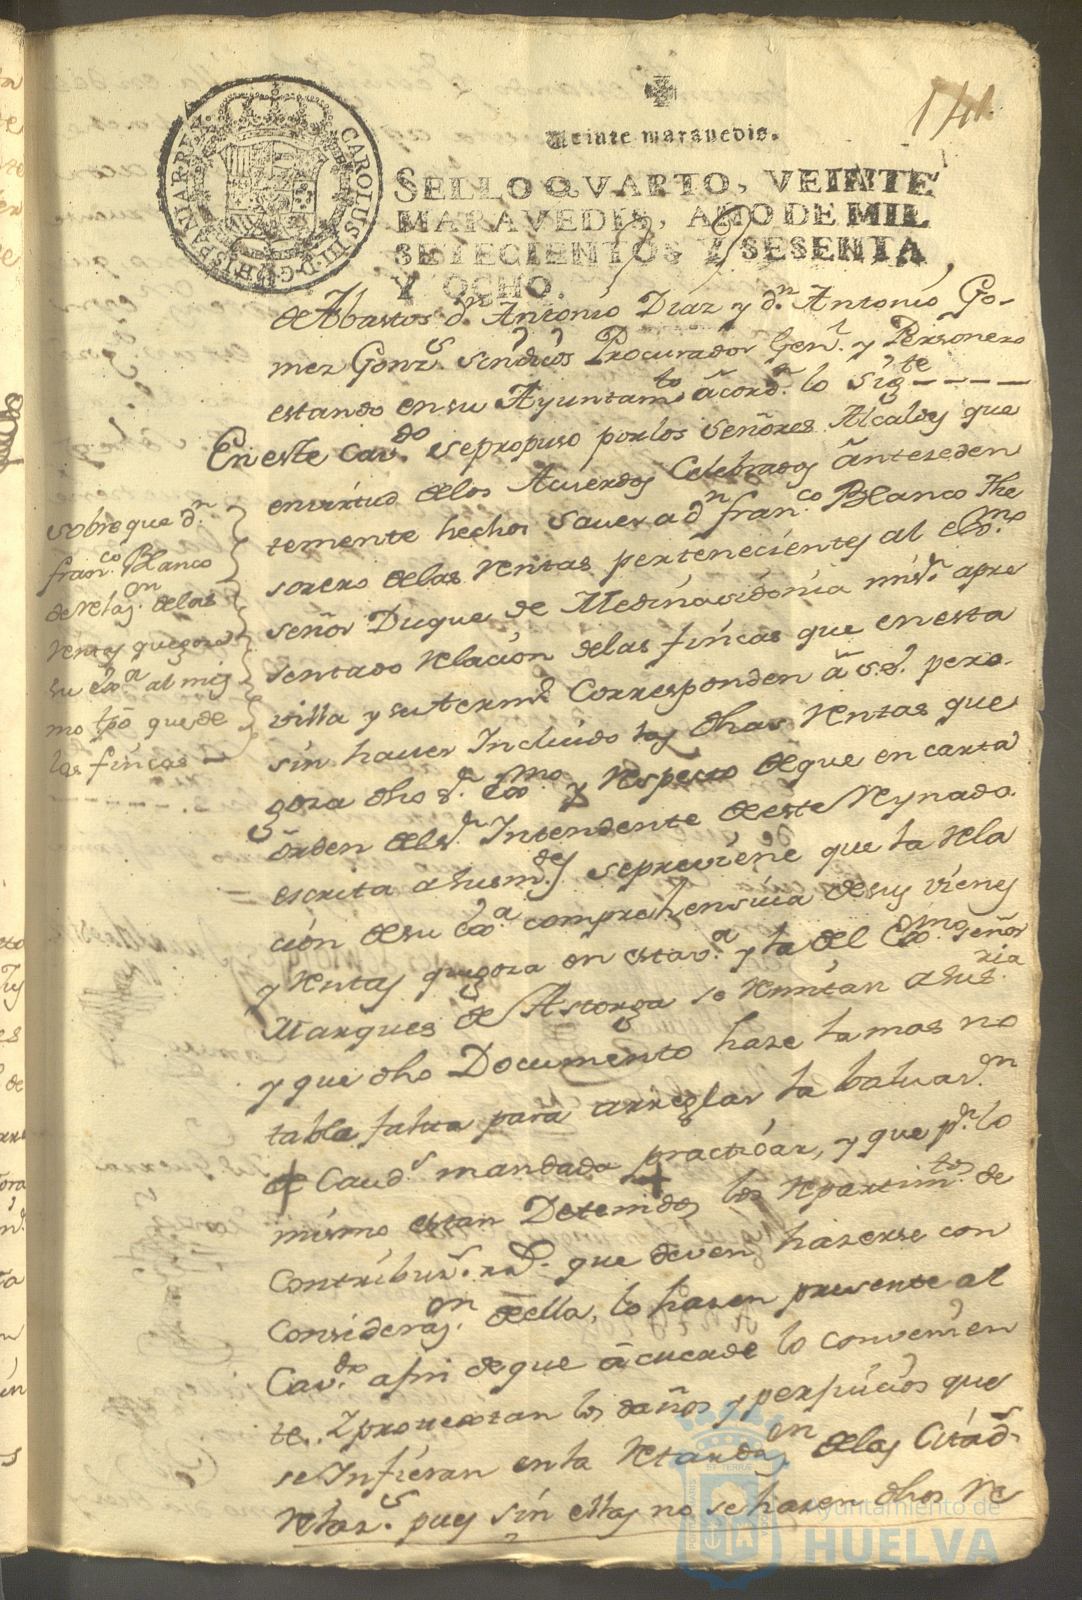 141
Veinte maravedis.
SELLO QVARTO, VEINTE
MARAVEDIS, AÑO DE MIL
SETECIENTOS Y SESENTA
Y OCHO.
CAROLUS III D.G. HISPANIAR REX
de Abastos dn. Antonio Diaz y dn. Antonio Go-
mez Gonz.s sindicos Procurador Genl. y Personero
estando en su Ayuntamto acordn. lo sigte - - - -
En este Cavdo. se propuso por los señores Alcaldes que
envirtud delos Acuerdos Celebrados anteseden
temente hechos saver a dn franco. Blanco The
sorero delas Rentas pertenecientes al Exmo.
señor Duque de Medinasidonia mi sr. apre
sentado Relacion delas fincas que en esta
villa y su termo. Corresponden a S.E. pero
sin haver Incluido las dhas Rentas que
goza dho Sr. Exmo. y Respecto de que en carta
orden del Sr. Intendente de este Reynado
escrita a sus mrdes se previene que la Rela
cion de su Exa. comprehensiva de sus vienes
y Rentas que goza en esta va. y la del Exmo. señor
Marques de Astorga se Remitan a su sria
y que dho Documento haze la mas no
table falta para arreglar la baluason
de Cauds mandada practicar, y que pr. lo
mismo estan Detenidos los Repartimtos. de
Contribus. rs. que deven hazerse con
Considerason. de ella, lo hazen presente al
Cavdo. a fin de que acuerde lo convenien
te. I protextan los daños y perjuicios que
se Infieran en la Retardason delas Citads
Relazs. pues sin ellas no se hazen dhos Re
sobre que dn.
franco Blanco
de Relason. delas
Rentas que goza
su Exa. al mis
mo tpo que de
las fincas
Ayuntamiento de
HUELVA